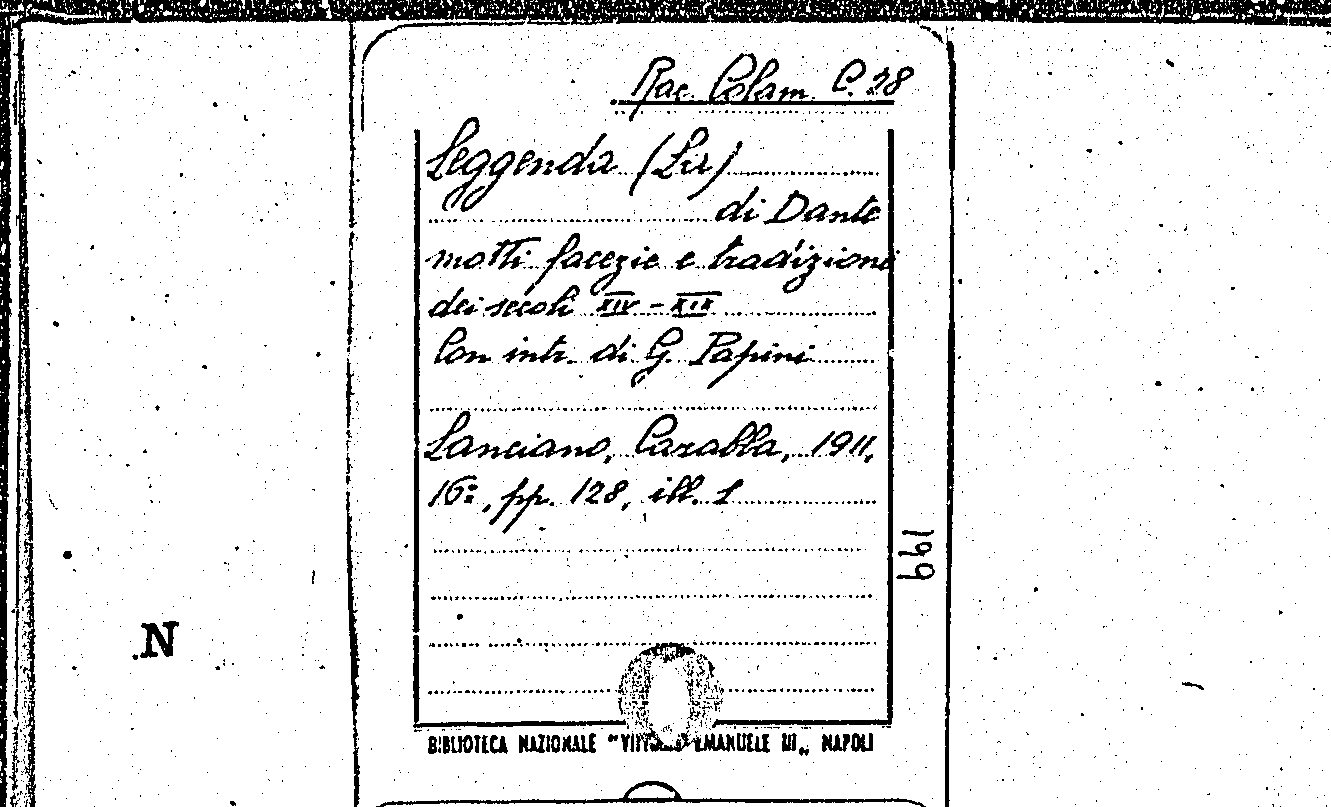 Rac. Colam. C. 28
Leggenda (La)
di Dante
motti facezie e tradizioni
dei secoli XIV - XIX
Con intr. di G. Papini
Lanciano, Carabba, 1911,
16º, pp. 128, ill. 1
199
N
BIBLIOTECA NAZIONALE "VITTORIO EMANUELE III„ NAPOLI